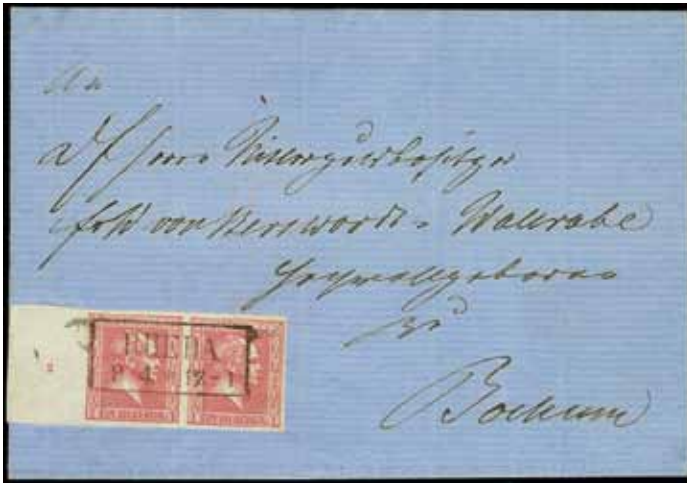 An
Herrn Rittergutsbesitzer
von Berswordt-Wallrabe
Hochwohlgeboren
zu
Bochum
RHEDA
2